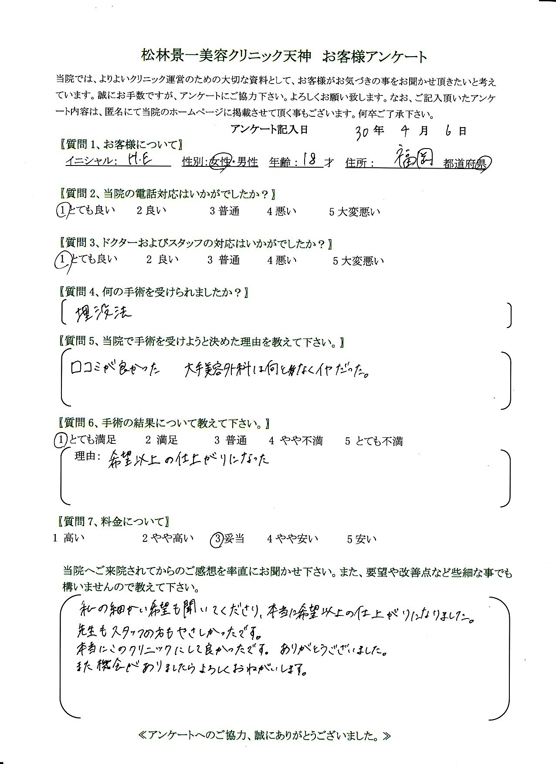 松林景一美容クリニック天神　お客様アンケート
当院では、よりよいクリニック運営のための大切な資料として、お客様がお気づきの事をお聞かせ頂きたいと考え
ています。誠にお手数ですが、アンケートにご協力下さい。よろしくお願い致します。なお、ご記入頂いたアンケ
ート内容は、匿名にて当院のホームページに掲載させて頂く事もございます。何卒ご了承下さい。
アンケート記入日　30年 4月 6日
〚質問 1、お客様について〛
イニシャル: H.E　性別:女性・男性　年齢:18才　住所: 福岡 都道府県
〚質問 2、当院の電話対応はいかがでしたか?〛
1とても良い　2 良い　3 普通　4 悪い　5 大変悪い
〚質問 3、ドクターおよびスタッフの対応はいかがでしたか?〛
1とても良い　2 良い　3 普通　4 悪い　5 大変悪い
〚質問 4、何の手術を受けられましたか?〛
埋没法
〚質問 5、当院で手術を受けようと決めた理由を教えて下さい。〛
口コミが良かった　大手美容外科は何となくイヤだった。
〚質問 6、手術の結果について教えて下さい。〛
1とても満足　2 満足　3 普通　4 やや不満　5 とても不満
理由: 希望以上の仕上がりになった
〚質問 7、料金について〛
1 高い　2 やや高い　3妥当　4 やや安い　5 安い
当院へご来院されてからのご感想を率直にお聞かせ下さい。また、要望や改善点など些細な事でも
構いませんので教えて下さい。
私の細かい希望も聞いてくださり、本当に希望以上の仕上がりになりました。
先生もスタッフの方もやさしかったです。
本当にこのクリニックにして良かったです。ありがとうございました。
また機会がありましたらよろしくおねがいします。
≪アンケートへのご協力、誠にありがとうございました。≫